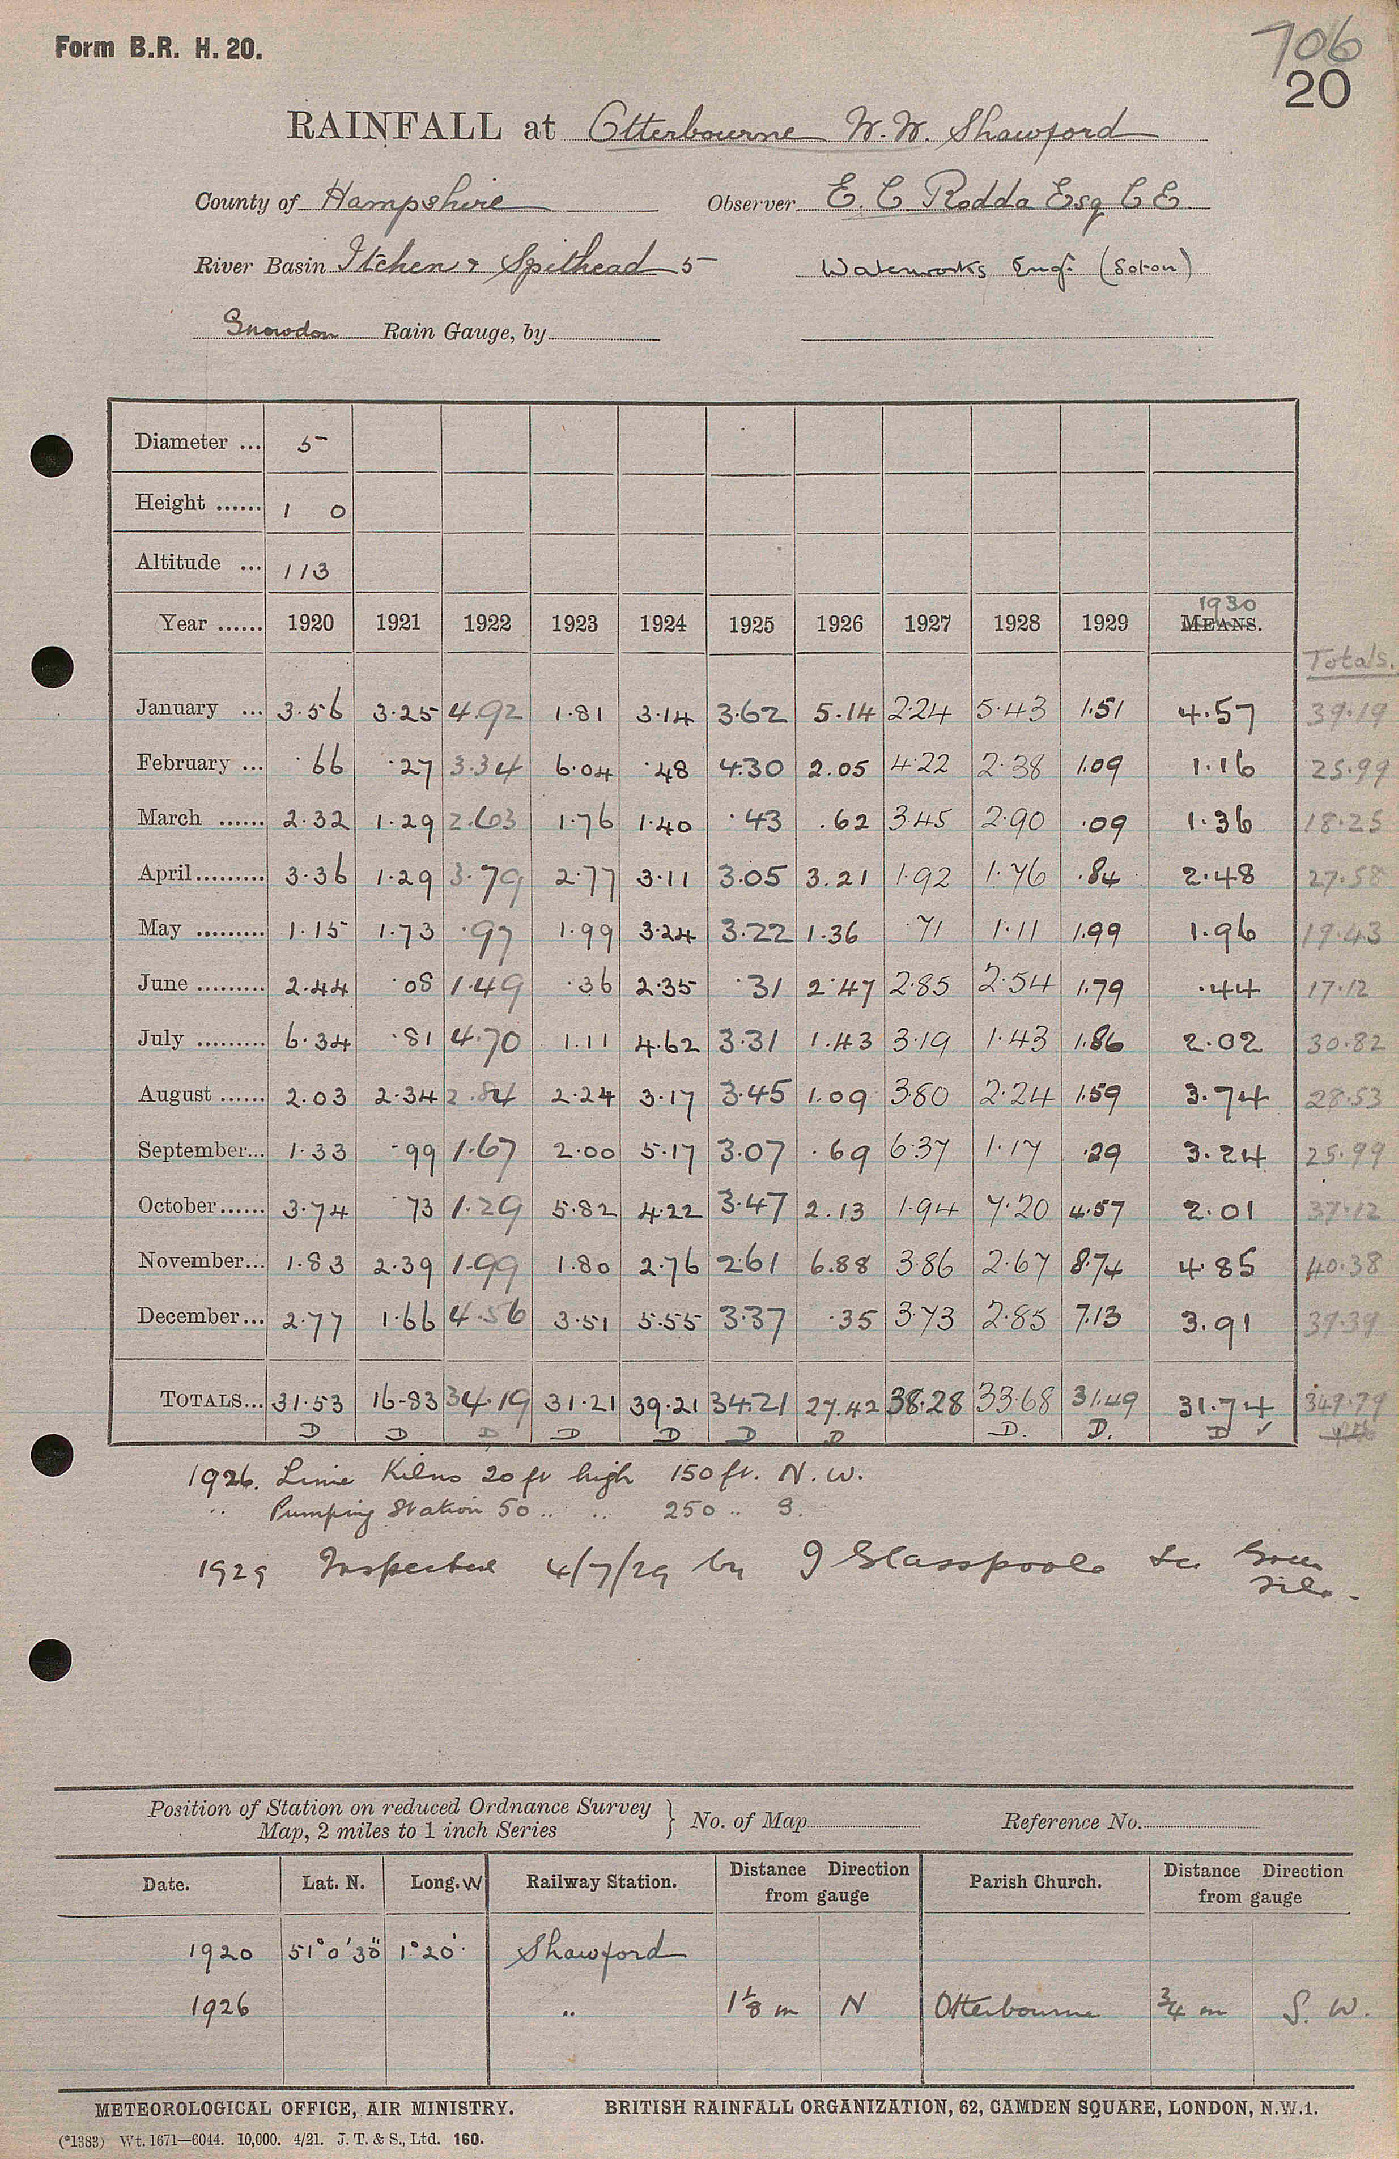 Form B.R. H. 20.
706
20
RAINFALL at Otterbourne W.W. Shawford
County of Hampshire Observer E. C Rodda Esq C E.
River Basin Itchen & Spithead 5 Waterworks Engr. (Soton)
Snowdon Rain Gauge, by
Diameter ... 5
Height ...... 1 0
Altitude ... 113
Year ...... 1920 1921 1922 1923 1924 1925 1926 1927 1928 1929 1930 MEANS.
Totals.
January ... 3.56 3.25 4.92 1.81 3.14 3.62 5.14 2.24 5.43 1.51 4.57 39.19
February ... .66 .27 3.34 6.04 .48 4.30 2.05 4.22 2.38 1.09 1.16 25.99
March ...... 2.32 1.29 2.63 1.76 1.40 .43 .62 3.45 2.90 .09 1.36 18.25
April ......... 3.36 1.29 3.79 2.77 3.11 3.05 3.21 1.92 1.76 .84 2.48 27.58
May ......... 1.15 1.73 .97 1.99 3.24 3.22 1.36 .71 1.11 1.99 1.96 19.43
June ......... 2.44 .08 1.49 .36 2.35 .31 2.47 2.85 2.54 1.79 .44 17.12
July ......... 6.34 .81 4.70 1.11 4.62 3.31 1.43 3.19 1.43 1.86 2.02 30.82
August ...... 2.03 2.34 2.84 2.24 3.17 3.45 1.09 3.80 2.24 1.59 3.74 28.53
September... 1.33 .99 1.67 2.00 5.17 3.07 .69 6.37 1.17 .29 3.24 25.99
October...... 3.74 73 1.29 5.82 4.22 3.47 2.13 1.94 7.20 4.57 2.01 37.12
November... 1.83 2.39 1.99 1.80 2.76 2.61 6.88 3.86 2.67 8.74 4.85 40.38
December... 2.77 1.66 4.56 3.51 5.55 3.37 .35 3.73 2.85 7.13 3.91 39.39
TOTALS... 31.53 16.83 34.19 31.21 39.21 34.21 27.42 38.28 33.68 31.49 31.74 349.79
D D D D D D D D. D. D ✓
1926. Lime Kilns 20 ft high 150 ft. N. W.
" Pumping Station 50 .. .. 250 .. S.
1929 Inspected 4/7/29 by J Glasspoole See Green File.
Position of Station on reduced Ordnance Survey
Map, 2 miles to 1 inch Series } No. of Map Reference No.
Date. Lat. N. Long. W Railway Station. Distance Direction from gauge Parish Church. Distance Direction from gauge
1920 51°0'30" 1°20' Shawford
1926 " 1⅛ m N Otterbourne ¾ m S. W.
METEOROLOGICAL OFFICE, AIR MINISTRY. BRITISH RAINFALL ORGANIZATION, 62, CAMDEN SQUARE, LONDON, N.W.1.
(*1383) Wt. 1671—6044. 10,000. 4/21. J. T. & S., Ltd. 160.